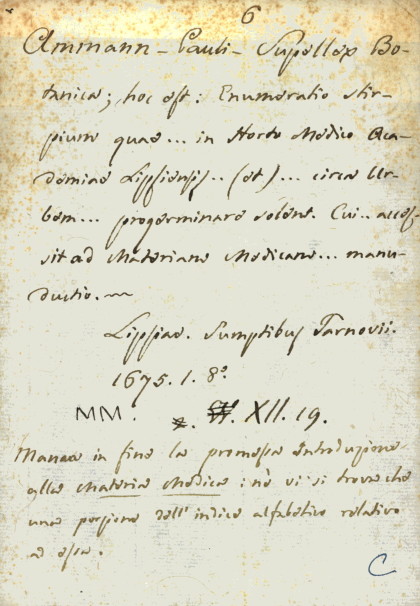 6
Ammann - Pauli - Supellex Bo-
tanica; hoc est: Enumeratio stir-
pium quae ... in Horto Medico Aca-
demiae Lipsiensis .. (et) ... circa Ur-
bem ... progerminare solent. Cui .. acces-
sit ad Materiam Medicam ... manu-
ductio.
Lipsiae. Sumptibus Tarnovii.
1675. 1. 8°.
MM. XII. 19.
Manca in fine la promessa Introduzione
alla Materia Medica: nè vi si trova che
una porzione dell'indice alfabetico relativo
ad essa.
C